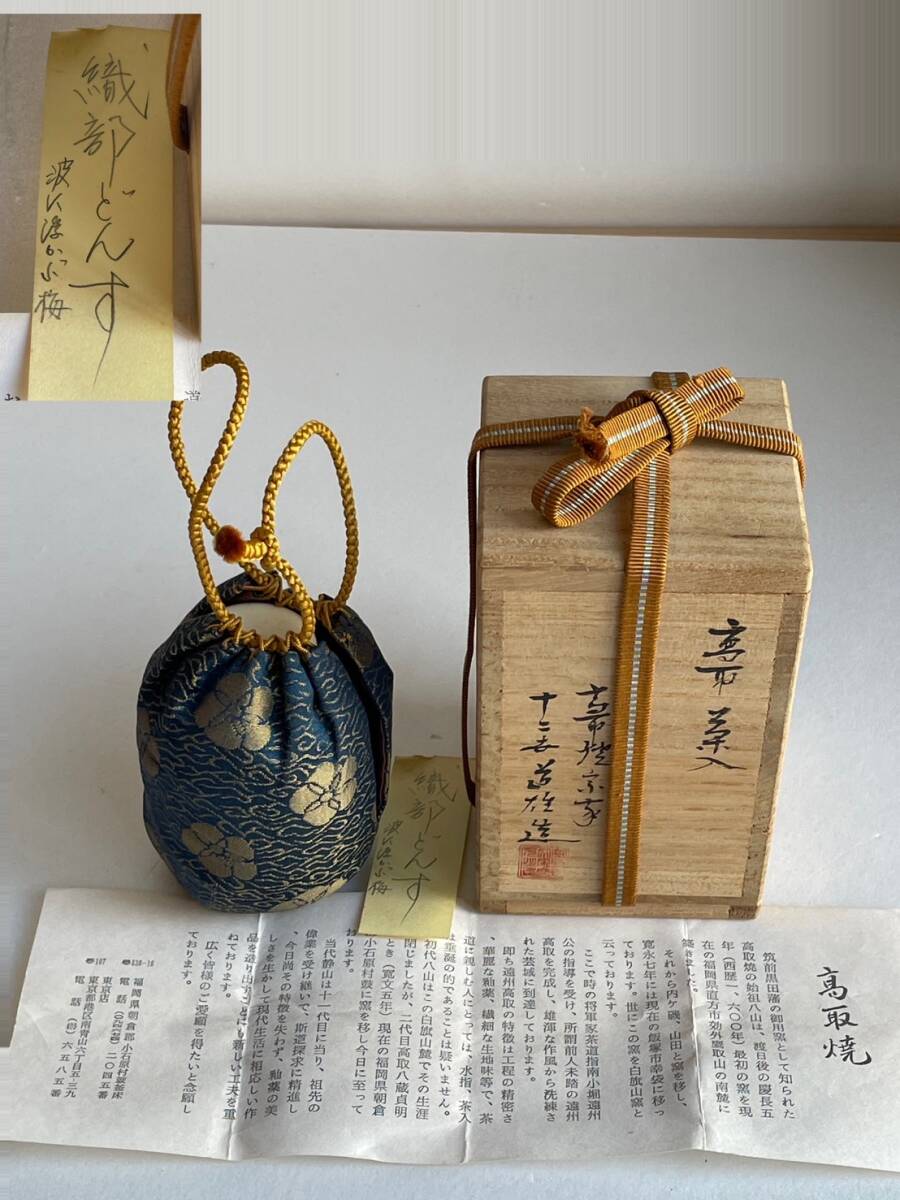 織部どんす
波に浮かぶ梅
高取 茶入
高取焼宗家
十二世 道雄造
織部どんす
波に浮かぶ梅
高取焼
筑前黒田藩の御用窯として知られた
高取焼の始祖八山は、渡日後の慶長五
年（西歴一、六〇〇年）最初の窯を現
在の福岡県直方市効外鷹取山の南麓に
築きました。
それから内ヶ磯、山田と窯を移し、
寛永七年には現在の飯塚市幸袋に移っ
ております。世にこの窯を白旗山窯と
云っております。
ここで時の将軍家茶道指南小堀遠州
公の指導を受け、所謂前人未踏の遠州
高取を完成し、雄渾な作風から洗練さ
れた芸域に到達しております。
即ち遠州高取の特徴は工程の精密さ
、華麗な釉薬、繊細な生地味等で、茶
道に親しむ人にとっては、水指、茶入
は垂涎の的であることは疑いません。
初代八山はこの白旗山麓でその生涯
を閉じましたが、二代目高取八蔵貞明
のとき、（寛文五年）現在の福岡県朝倉
郡小石原村鼓に窯を移し今日に至って
おります。
当代静山は十一代目に当り、祖先の
偉業を受け継いで、斯道探求に精進し
、今日尚その特徴を失わず、釉薬の美
しさを生かして現代生活に相応しい作
品を造り出すことにも新しい工夫を重
ねております。
広く皆様のご愛顧を得たいと念願し
ております。
福岡県朝倉郡小石原村鼓釜床
東京店
東京都港区南青山六丁目五-三九